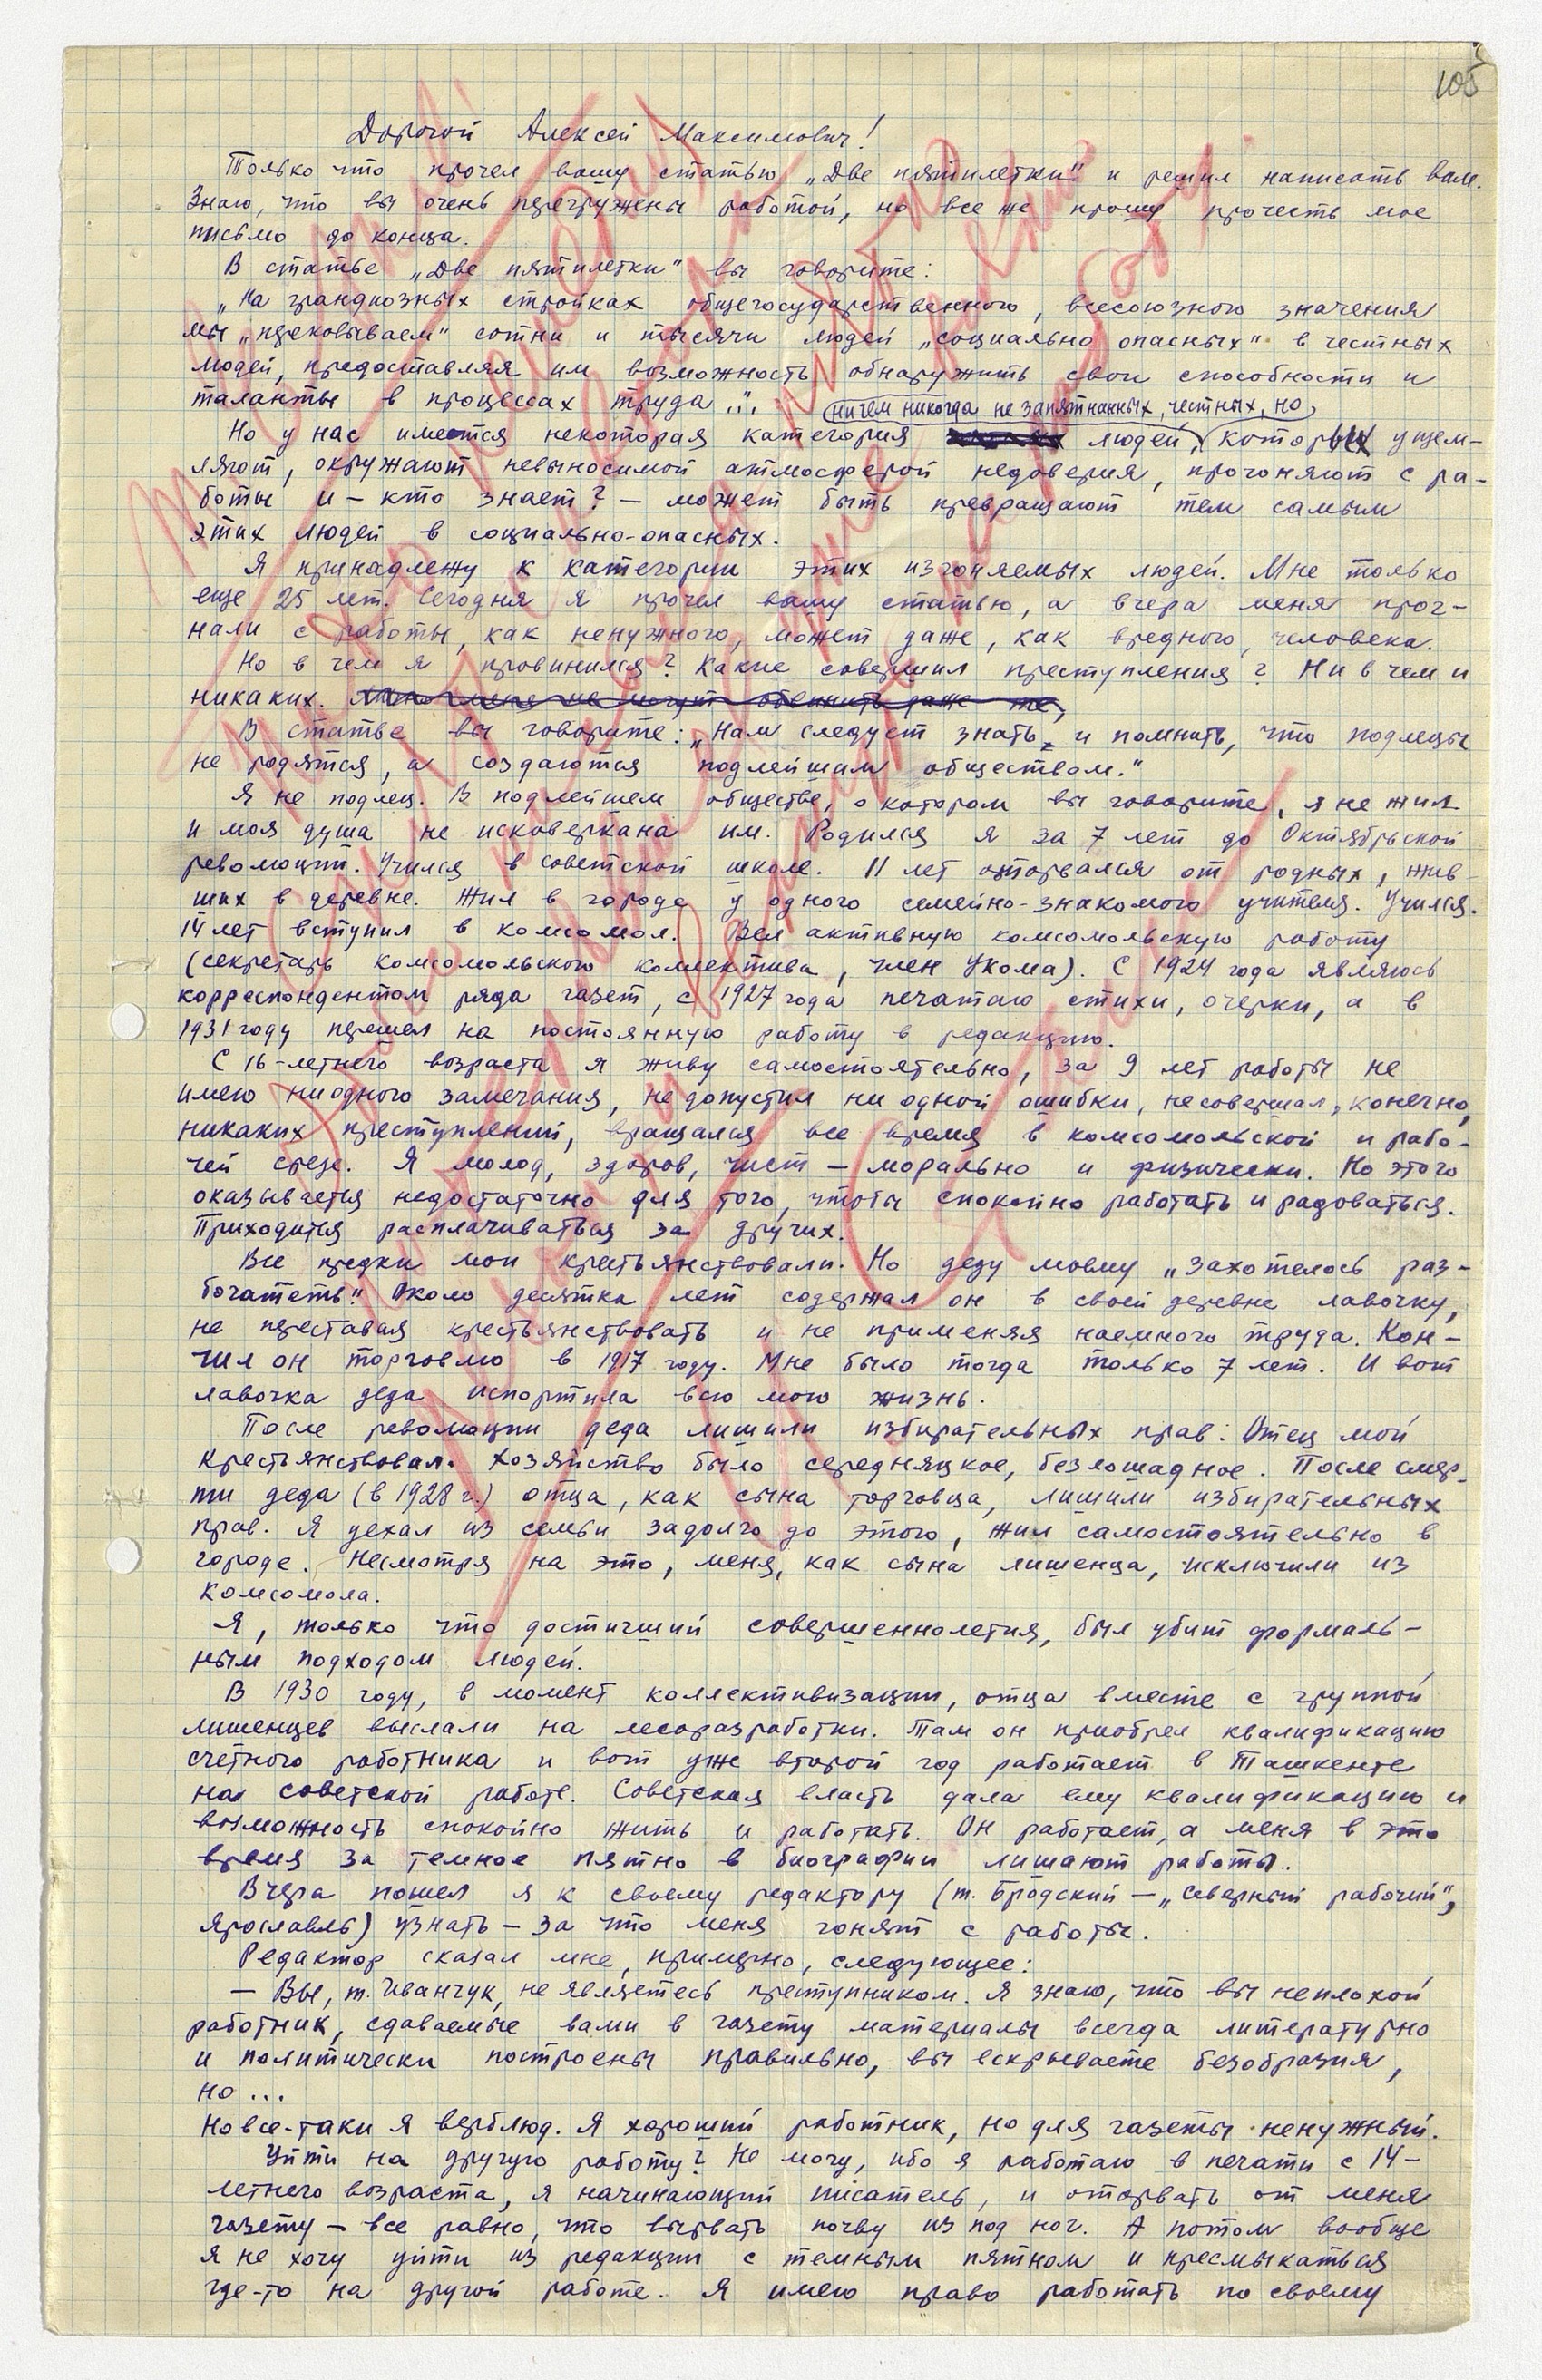 105
Дорогой Алексей Максимович!
Только что прочел вашу статью „Две пятилетки" и решил написать вам.
Знаю, что вы очень перегружены работой, но все же прошу прочесть мое
письмо до конца.
В статье „Две пятилетки" вы говорите:
„На грандиозных стройках общегосударственного, всесоюзного значения
мы „перековываем" сотни и тысячи людей „социально опасных" в честных
людей, предоставляя им возможность обнаружить свои способности и
таланты в процессах труда..".
ничем никогда не запятнанных, честных, но
Но у нас имеется некоторая категория людей, которых ущем-
ляют, окружают невыносимой атмосферой недоверия, прогоняют с ра-
боты и – кто знает? – может быть превращают тем самым
этих людей в социально-опасных.
Я принадлежу к категории этих изгоняемых людей. Мне только
еще 25 лет. Сегодня я прочел вашу статью, а вчера меня прог-
нали с работы, как ненужного, может даже, как вредного, человека.
Но в чем я провинился? Какие совершил преступления? Ни в чем и
никаких. меня не могут обвинить даже те,
В статье вы говорите: „Нам следует знать и помнить, что подлецы
не родятся, а создаются подлейшим обществом."
Я не подлец. В подлейшем обществе, о котором вы говорите, я не жил
и моя душа не исковеркана им. Родился я за 7 лет до Октябрьской
революции. Учился в советской школе. 11 лет оторвался от родных, жив-
ших в деревне. Жил в городе у одного семейно-знакомого учителя. Учился.
14 лет вступил в комсомол. Вел активную комсомольскую работу
(секретарь комсомольского коллектива, член Укома). С 1924 года являюсь
корреспондентом ряда газет, с 1927 года печатаю стихи, очерки, а в
1931 году перешел на постоянную работу в редакцию.
С 16-летнего возраста я живу самостоятельно, за 9 лет работы не
имею ниодного замечания, не допустил ни одной ошибки, несовершал, конечно,
никаких преступлений, вращался все время в комсомольской и рабо-
чей среде. Я молод, здоров, чист – морально и физически. Но этого
оказывается недостаточно для того, чтобы спокойно работать и радоваться.
Приходится расплачиваться за других.
Все предки мои крестьянствовали. Но деду моему „захотелось раз-
богатеть". Около десятка лет содержал он в своей деревне лавочку,
не переставая крестьянствовать и не применяя наемного труда. Кон-
чил он торговлю в 1917 году. Мне было тогда только 7 лет. И вот
лавочка деда испортила всю мою жизнь.
После революции деда лишили избирательных прав. Отец мой
крестьянствовал. Хозяйство было середняцкое, безлошадное. После смер-
ти деда (в 1928 г.) отца, как сына торговца, лишили избирательных
прав. Я уехал из семьи задолго до этого, жил самостоятельно в
городе. Несмотря на это, меня, как сына лишенца, исключили из
комсомола.
Я, только что достигший совершеннолетия, был убит формаль-
ным подходом людей.
В 1930 году, в момент коллективизации, отца вместе с группой
лишенцев выслали на лесоразработки. Там он приобрел квалификацию
счетного работника и вот уже второй год работает в Ташкенте
на советской работе. Советская власть дала ему квалификацию и
возможность спокойно жить и работать. Он работает, а меня в это
время за темное пятно в биографии лишают работы.
Вчера пошел я к своему редактору (т. Бродский – „Северный рабочий",
Ярославль) узнать – за что меня гонят с работы.
Редактор сказал мне, примерно, следующее:
– Вы, т. Иванчук, не являетесь преступником. Я знаю, что вы неплохой
работник, сдаваемые вами в газету материалы всегда литературно
и политически построены правильно, вы вскрываете безобразия,
но ...
Но все-таки я верблюд. Я хороший работник, но для газеты ненужный.
Уйти на другую работу? Не могу, ибо я работаю в печати с 14-
летнего возраста, я начинающий писатель, и оторвать от меня
газету – все равно, что вырвать почву из под ног. А потом вообще
я не хочу уйти из редакции с темным пятном и пресмыкаться
где-то на другой работе. Я имею право работать по своему